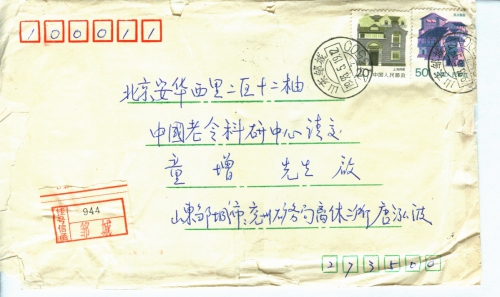 100011
20 中国人民邮政
50 中国人民邮政
北京安华西里二区十二楼
中国老令科研中心请交
童增 先生 启
挂号信函
944
邹城
山东邹城市兖州矿务局离休三所 唐泓波
273500